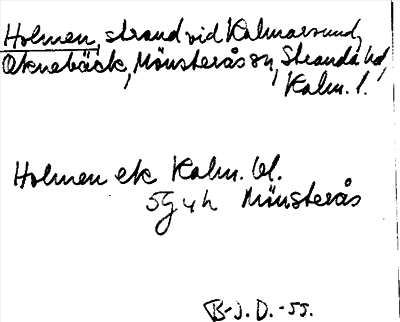 Holmen, strand vid Kalmarsund,
Oknebäck, Mönsterås sn, Stranda hd,
Kalm. l.
Holmen ek Kalm. bl.
5G4h Mönsterås
B-J. D. -55.